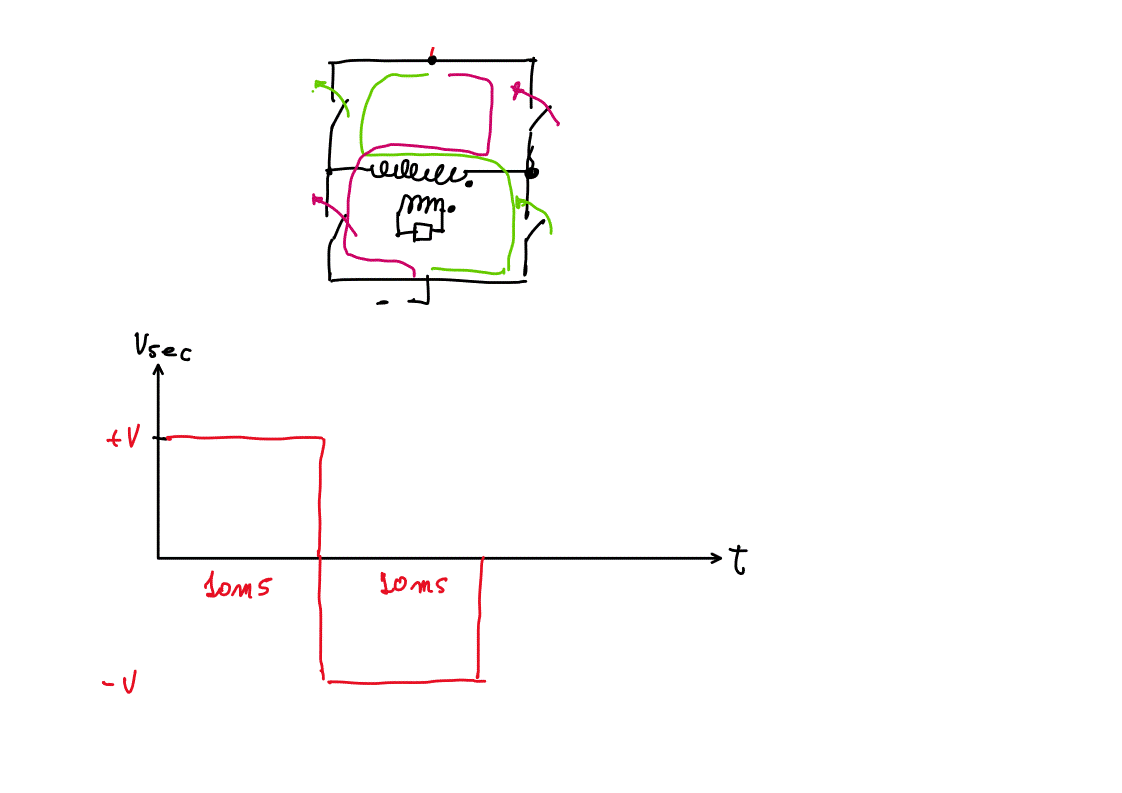 Vsec
+V
t
10ms 10ms
-V